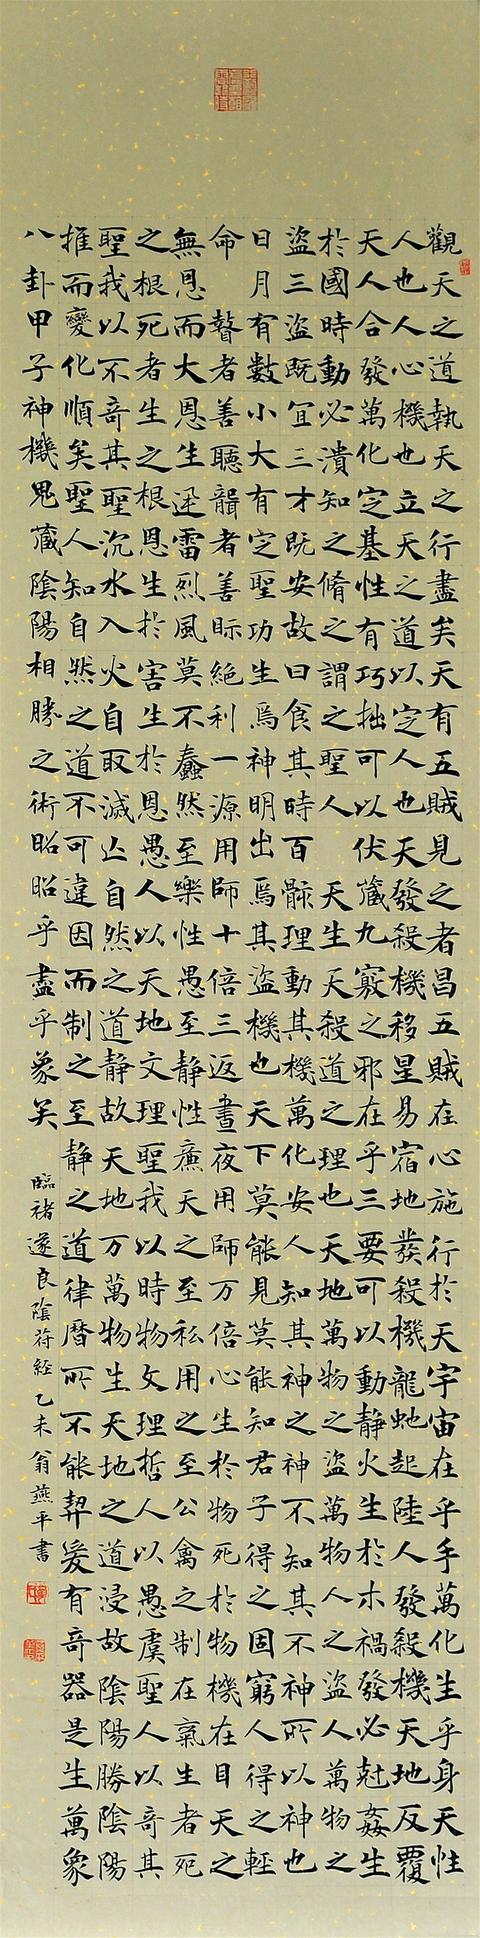 觀天之道執天之行盡矣天有五賊見之者昌五賊在心施行於天宇宙在乎手萬化生乎身天性
人也人心機也立天之道以定人也天發殺機移星易宿地發殺機龍虵起陸人發殺機天地反覆
天人合發萬化定基性有巧拙可以伏藏九竅之邪在乎三要可以動静火生於木禍發必尅姦生
於國時動必潰知之脩之謂之聖人 天生天殺道之理也天地萬物之盜萬物人之盜人萬物之
盜三盜既宜三才既安故曰食其時百骸理動其機萬化安人知其神之神不知其不神所以神也
日月有數小大有定聖功生焉神明出焉其盜機也天下莫能見莫能知君子得之固窮人得之輕
命 瞽者善聽聾者善眎絕利一源用師十倍三返晝夜用師万倍心生於物死於物機在目天之
無恩而大恩生迅雷烈風莫不蠢然至樂性愚至静性廉天之至私用之至公禽之制在氣生者死
之根死者生之根恩生於害生於恩愚人以天地文理聖我以時物文理哲人以愚虞聖人以奇其
聖我以不奇其聖沉水入火自取滅亡自然之道静故天地万萬物生天地之道浸故陰陽勝陰陽
推而變化順矣聖人知自然之道不可違因而制之至静之道律曆所不能契爰有奇器是生萬象
八卦甲子神機鬼藏陰陽相勝之術昭昭乎盡乎象矣
臨褚遂良陰符經乙未翁燕平書